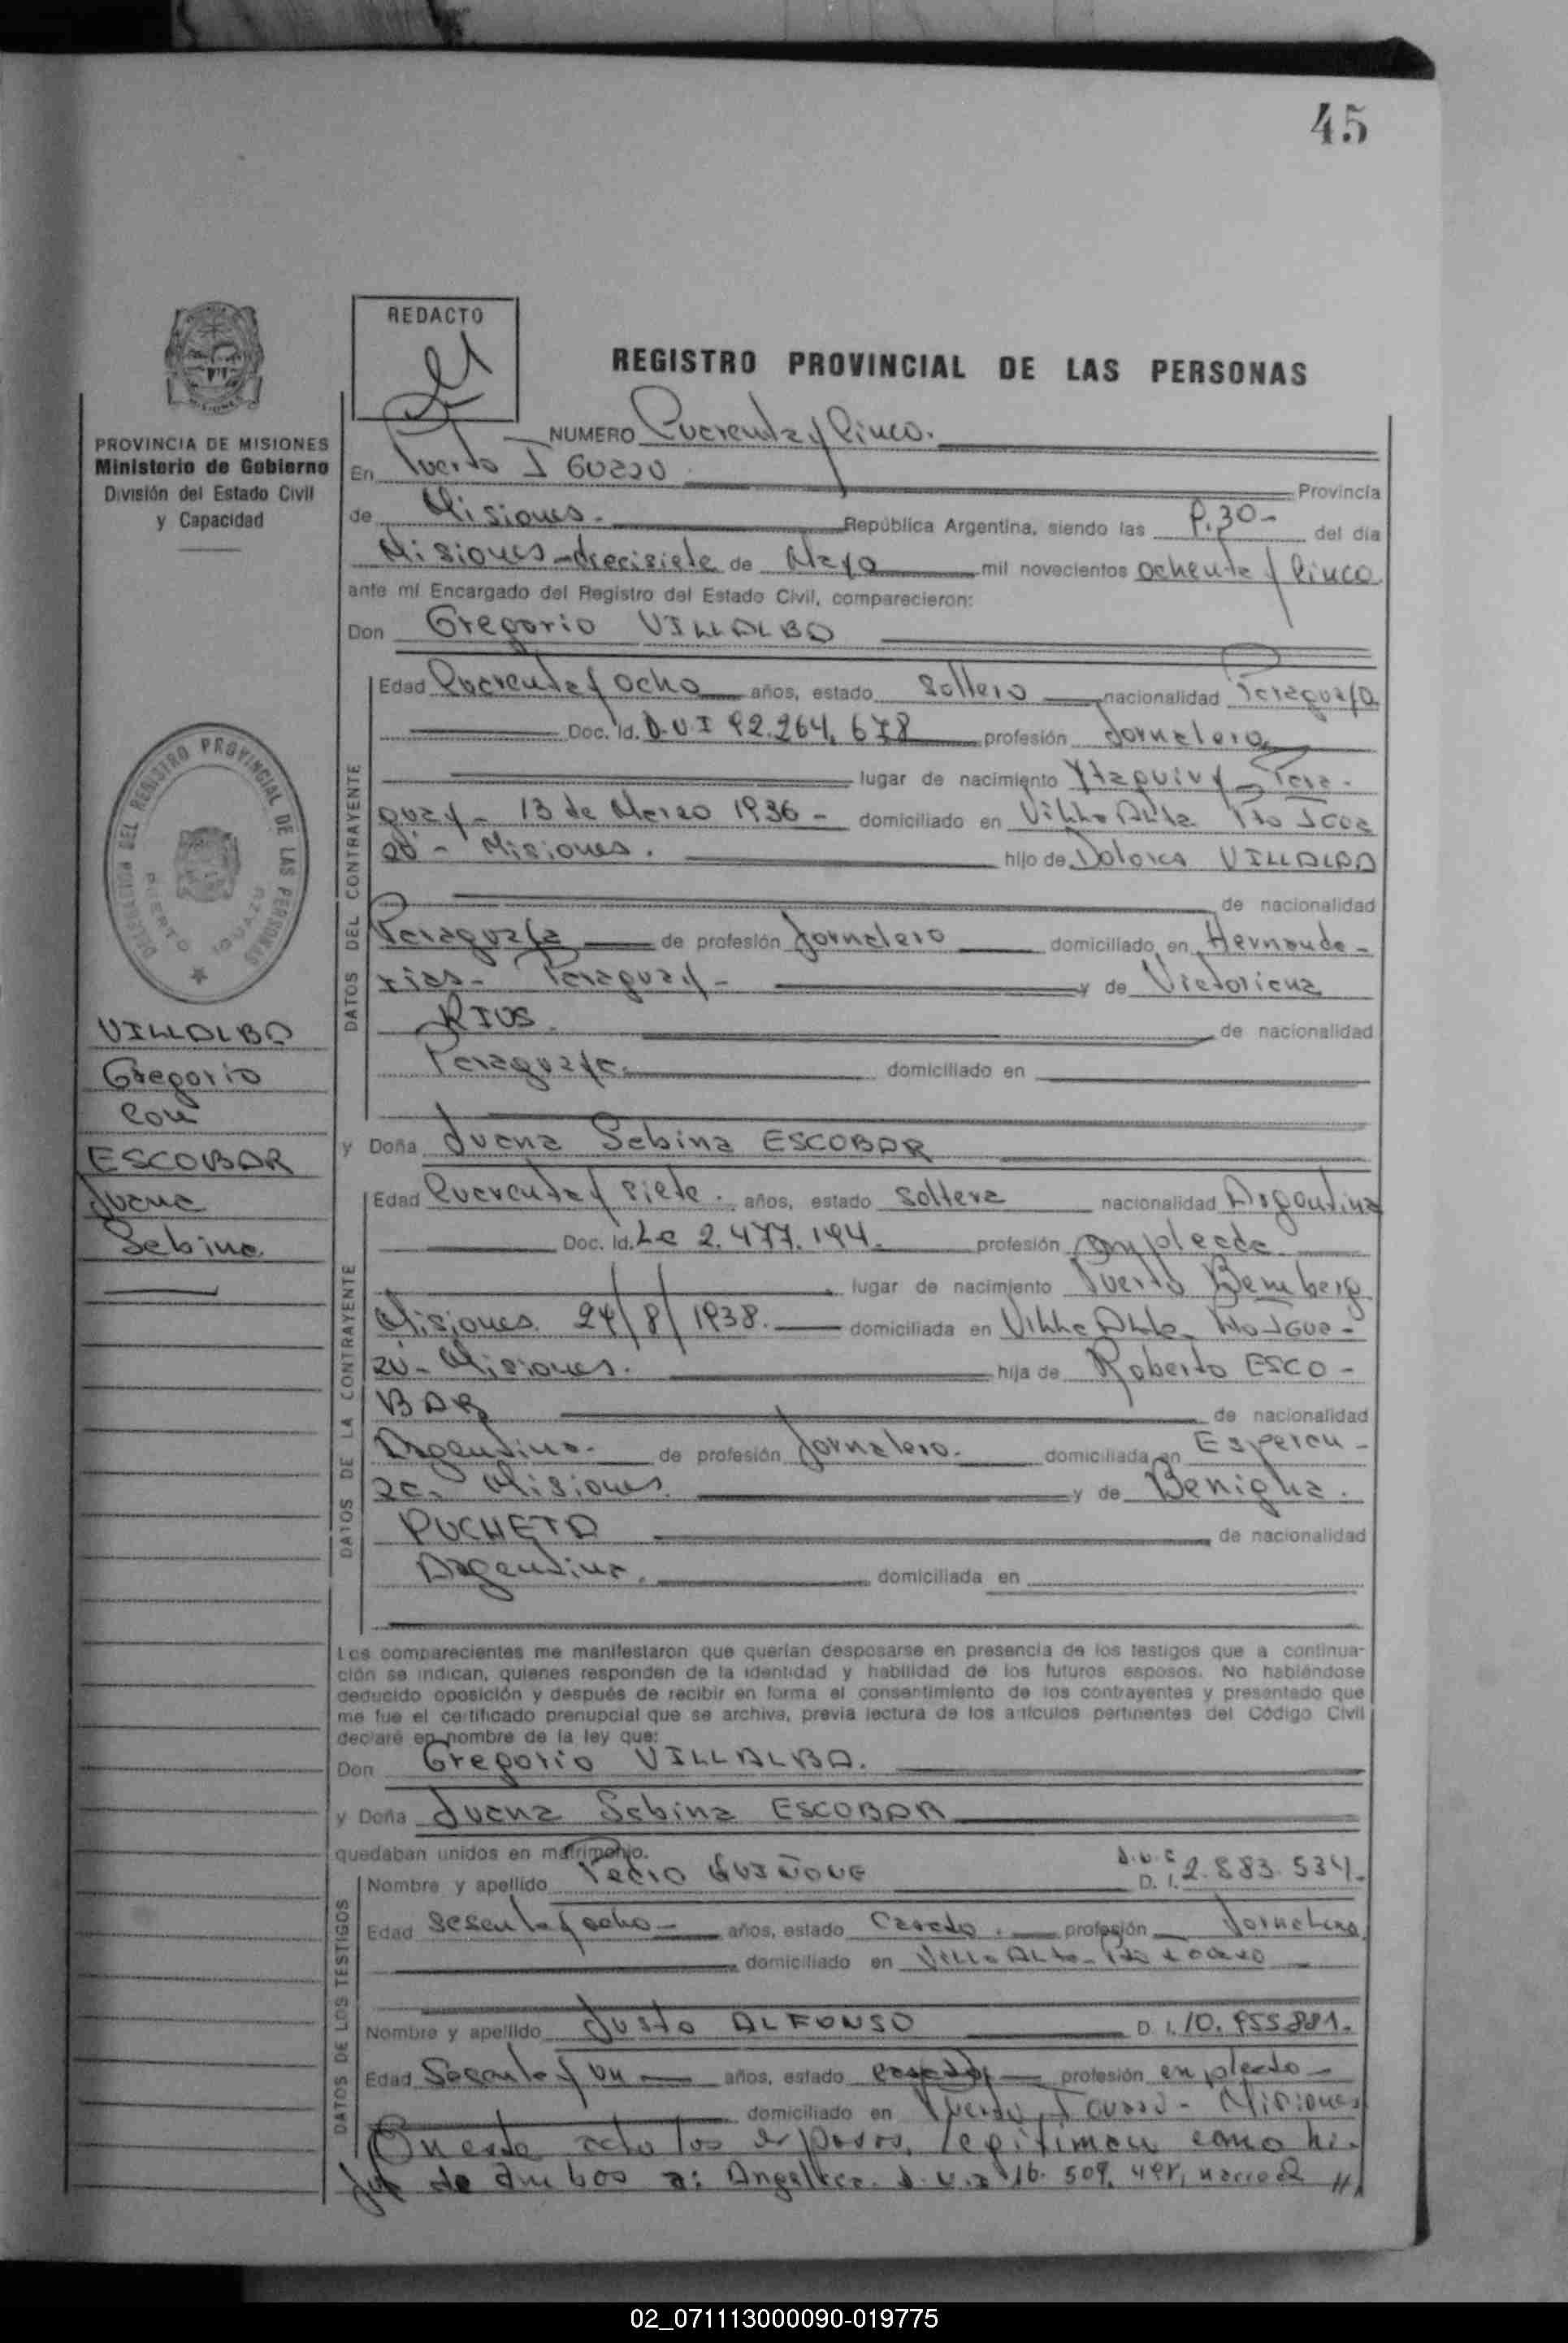 45
REDACTO
REGISTRO PROVINCIAL DE LAS PERSONAS
PROVINCIA DE MISIONES
Ministerio de Gobierno
División del Estado Civil
y Capacidad
NUMERO Cuarenta y Cinco.
En Puerto IGUAZU Provincia
de Misiones. República Argentina, siendo las 9.30- del día
Misiones - diecisiete de Mayo mil novecientos ochenta y Cinco
ante mí Encargado del Registro del Estado Civil, comparecieron:
Don Gregorio VILLALBA
DATOS DEL CONTRAYENTE
Edad Cuarenta y ocho años, estado Soltero nacionalidad Paraguaya
Doc. Id. D.N.I 92.264.678 profesión Jornalero
lugar de nacimiento Ytaquyry - Para-
guay - 13 de Marzo 1936 - domiciliado en Villa Alta Pto Igua
zú - Misiones. hijo de Dolores VILLALBA
de nacionalidad
Paraguaya de profesión Jornalero domiciliado en Hernanda-
rias - Paraguay - y de Victoriana
RIOS. de nacionalidad
Paraguaya. domiciliado en
DELEGACION DEL REGISTRO PROVINCIAL DE LAS PERSONAS
PUERTO IGUAZU
VILLALBA
Gregorio
Con
ESCOBAR
Juana
Sabina
y Doña Juana Sabina ESCOBAR
DATOS DE LA CONTRAYENTE
Edad Cuarenta y siete. años, estado Soltera nacionalidad Argentina
Doc. Id. Lc 2.477.194. profesión Empleada
lugar de nacimiento Puerto Bemberg
Misiones 24/8/1938. domiciliada en Villa Alta Pto IGua-
zú - Misiones. hija de Roberto ESCO-
BAR de nacionalidad
Argentina. de profesión Jornalero. domiciliada en Esperan-
za. Misiones. y de Benigna.
PUCHETA de nacionalidad
Argentina. domiciliada en
Los comparecientes me manifestaron que querían desposarse en presencia de los testigos que a continua-
ción se indican, quienes responden de la identidad y habilidad de los futuros esposos. No habiéndose
deducido oposición y después de recibir en forma el consentimiento de los contrayentes y presentado que
me fue el certificado prenupcial que se archiva, previa lectura de los artículos pertinentes del Código Civil
declaré en nombre de la ley que:
Don Gregorio VILLALBA.
y Doña Juana Sabina ESCOBAR
quedaban unidos en matrimonio.
DATOS DE LOS TESTIGOS
Nombre y apellido Pedro D. I. 2.883.534.
Edad Sesenta y ocho - años, estado Casado. profesión Jornalero
domiciliado en Villa Alta - Pto
Nombre y apellido Justo ALFONSO D. I. 10.955.881.
Edad Sesenta y un años, estado casado profesión empleado -
domiciliado en Puerto Iguazú - Misiones
En este acto los esposos, legitiman como hi-
ja de ambos a: Angelica. D.N.I 16.509.498, nacida //
02_071113000090-019775